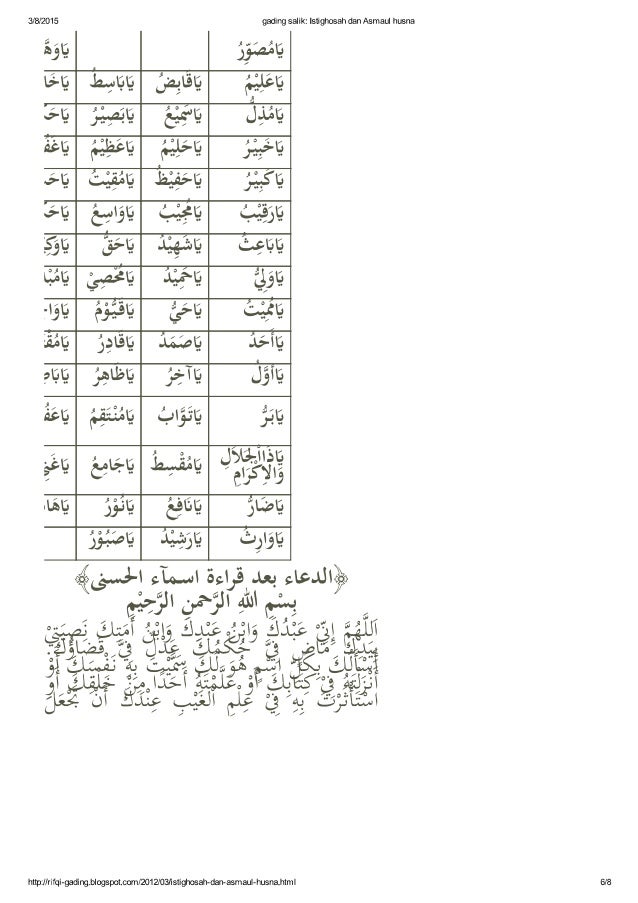 3/8/2015 gading salik: Istighosah dan Asmaul husna
يَامُصَوِّرُ
يَاعَلِيْمُ يَاقَابِضُ يَابَاسِطُ
يَامُذِلُّ يَاسَمِيْعُ يَابَصِيْرُ
يَاخَبِيْرُ يَاحَلِيْمُ يَاعَظِيْمُ
يَاكَبِيْرُ يَاحَفِيْظُ يَامُقِيْتُ
يَارَقِيْبُ يَامُجِيْبُ يَاوَاسِعُ
يَابَاعِثُ يَاشَهِيْدُ يَاحَقُّ
يَاوَلِيُّ يَاحَمِيْدُ يَامُحْصِيْ
يَامُمِيْتُ يَاحَيُّ يَاقَيُّوْمُ
يَاأَحَدُ يَاصَمَدُ يَاقَادِرُ
يَاأَوَّلُ يَاآخِرُ يَاظَاهِرُ
يَابَرُّ يَاتَوَّابُ يَامُنْتَقِمُ
يَاذَاالْجَلاَلِ وَالاِكْرَامِ يَامُقْسِطُ يَاجَامِعُ
يَاضَارُّ يَانَافِعُ يَانُوْرُ
يَاوَارِثُ يَارَشِيْدُ يَاصَبُوْرُ
﴿الدعاء بعد قراءة اسمآء الحسنى﴾
بِسْمِ اللهِ الرَّحْمنِ الرَّحِيْمِ
اَللَّهُمَّ اِنِّيْ عَبْدُكَ وَابْنُ عَبْدِكَ وَابْنُ أَمَتِكَ نَصِيَتِيْ
بِيَدِكَ مَاضٍ فِيَّ حُكْمُكَ عَدْلٌ فِيَّ قَضَاؤُكَ.
أَسْأَلُكَ بِكُلِّ اسْمٍ هُوَ لَكَ سَمَّيْتَ بِهِ نَفْسَكَ أَوْ
أَنْزَلْتَهُ فِيْ كِتَابِكَ أَوْ عَلَّمْتَهُ أَحَدًا مِنْ خَلْقِكَ أَوِ
اسْتَأْثَرْتَ بِهِ فِيْ عِلْمِ الْغَيْبِ عِنْدَكَ أَنْ تَجْعَلَ
http://rifqi-gading.blogspot.com/2012/03/istighosah-dan-asmaul-husna.html 6/8